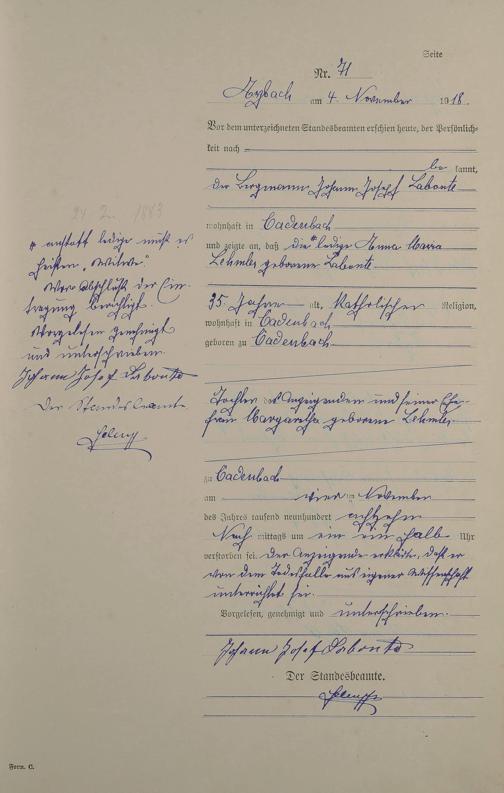 Seite
Nr. 71
Arzbach am 4. November 1918.
Vor dem unterzeichneten Standesbeamten erschien heute, der Persönlich-
keit nach
be kannt,
der Bergmann Johann Josef Labonte
wohnhaft in Cadenbach
und zeigte an, daß die * ledige Anna Maria
Lehmler geborene Labonte
35 Jahre alt, Katholischer Religion,
wohnhaft in Cadenbach
geboren zu Cadenbach
Tochter des Anzeigenden und seiner Ehe-
frau Margaretha geborene Lehmler
zu Cadenbach
am vier ten November
des Jahres tausend neunhundert achtzehn
Nach mittags um ein ein halb Uhr
verstorben sei. Der Anzeigende erklärte, daß er
von dem Todesfalle aus eigener Wissenschaft
unterrichtet sei.
Vorgelesen, genehmigt und unterschrieben.
Johann Josef Labonte
Der Standesbeamte.
24 2. 1883
* anstatt ledige muß es
heißen „Witwe"
Vor Abschluß der Ein-
tragung berichtigt.
Vorgelesen genehmigt
und unterschrieben
Johann Josef Labonte
Der Standesbeamte
Form. C.